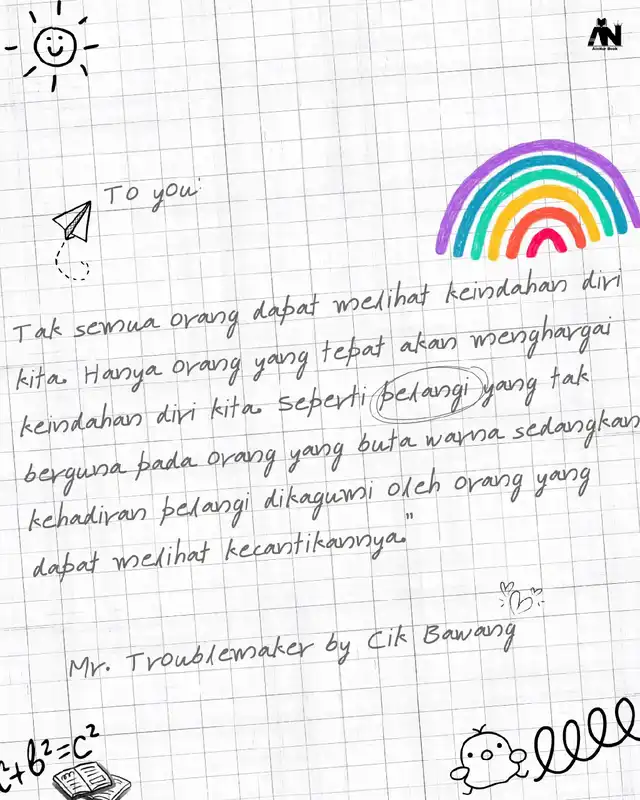 AN
Aindar Book
To you:
Tak semua orang dapat melihat keindahan diri
kita. Hanya orang yang tepat akan menghargai
keindahan diri kita. Seperti pelangi yang tak
berguna pada orang yang buta warna sedangkan
kehadiran pelangi dikagumi oleh orang yang
dapat melihat kecantikannya."
Mr. Troublemaker by Cik Bawang
²+b²=c²